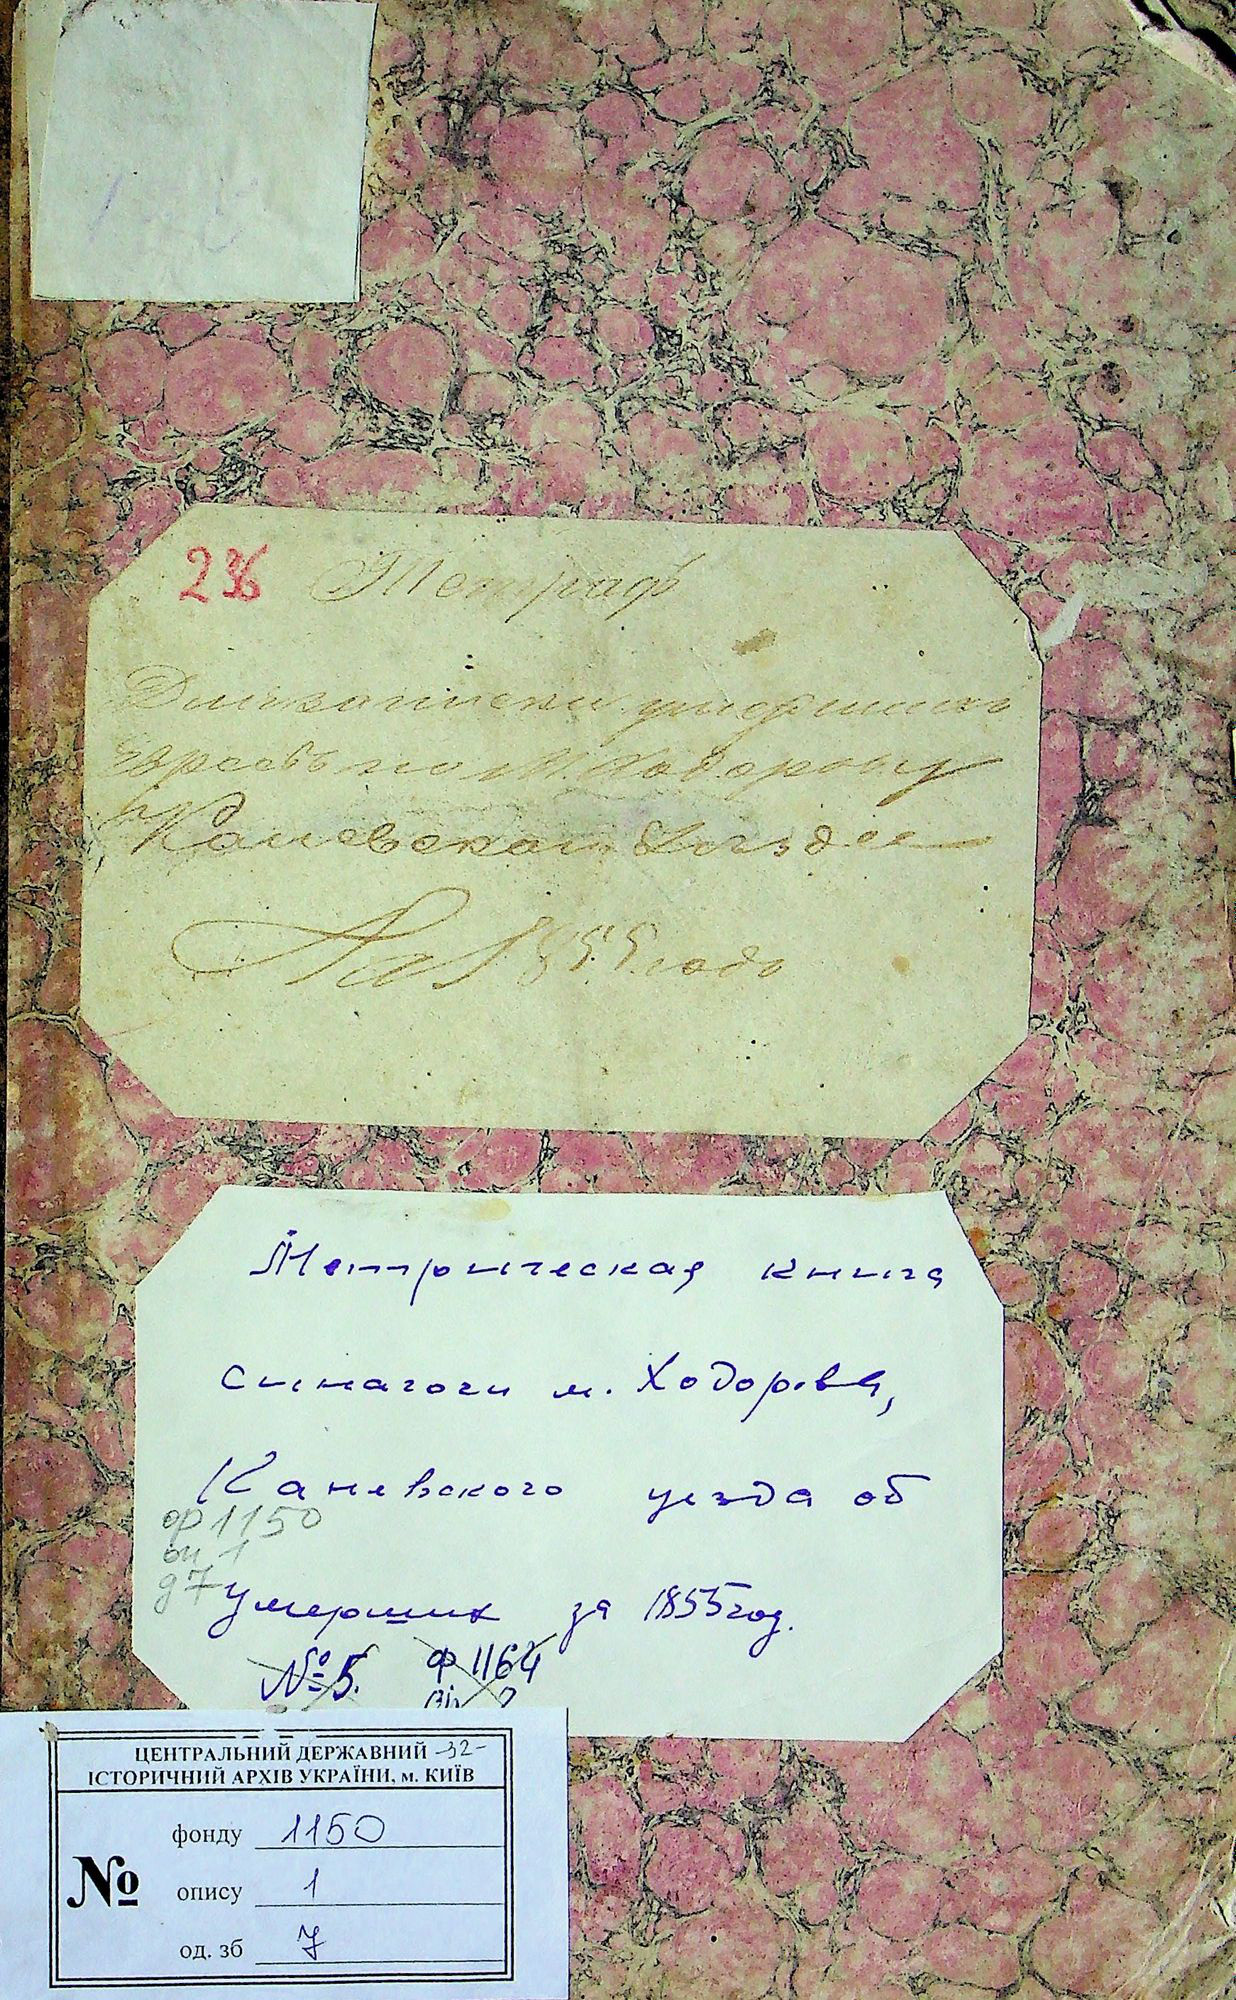 236
Для записки умершихъ
евреевъ по М. Ходорову
Каневскаго уезда
На 1855 года
Метрическая книга
синагоги м. Ходорова,
Каневского уезда об
ф 1150
оп 1
д 7
умерших за 1855 год.
№ 5. ф 1164
ЦЕНТРАЛЬНИЙ ДЕРЖАВНИЙ -32-
ІСТОРИЧНИЙ АРХІВ УКРАЇНИ, м. КИЇВ
фонду 1150
№ опису 1
од. зб 7